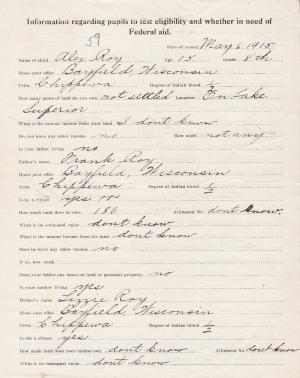 Information regarding pupils to test eligibility and whether in need of
Federal aid.
59
Date of record May 6, 1915
Name of child, Alex Roy Age, 15 Grade 8th
Home post office Bayfield, Wisconsin
Tribe Chippewa Degree of Indian blood 1/2
How many acres of land do you own, not settled Location On Lake
Superior
What is the annual income from your land, I dont know
Do you have any other income no How much not any
Is your father living no
Father's name Frank Roy
Home post office Bayfield, Wisconsin
Tribe Chippewa Degree of Indian blood 1/2
Is he a citizen yes
How much land does he own, 180 Allotment No. dont know.
What is its estimated value dont know.
What is the annual income from his land, dont know
Does he have any other income no
If so, how much
Does your father pay taxes on land or personal property, no
Is your mother living yes
Mother's name Lizzie Roy
Home post office Bayfield, Wisconsin
Tribe Chippewa Degree of Indian blood 1/2
Is she a citizen yes
How much land does your mother own, dont know Allotment No. dont know
What is its estimated value dont know